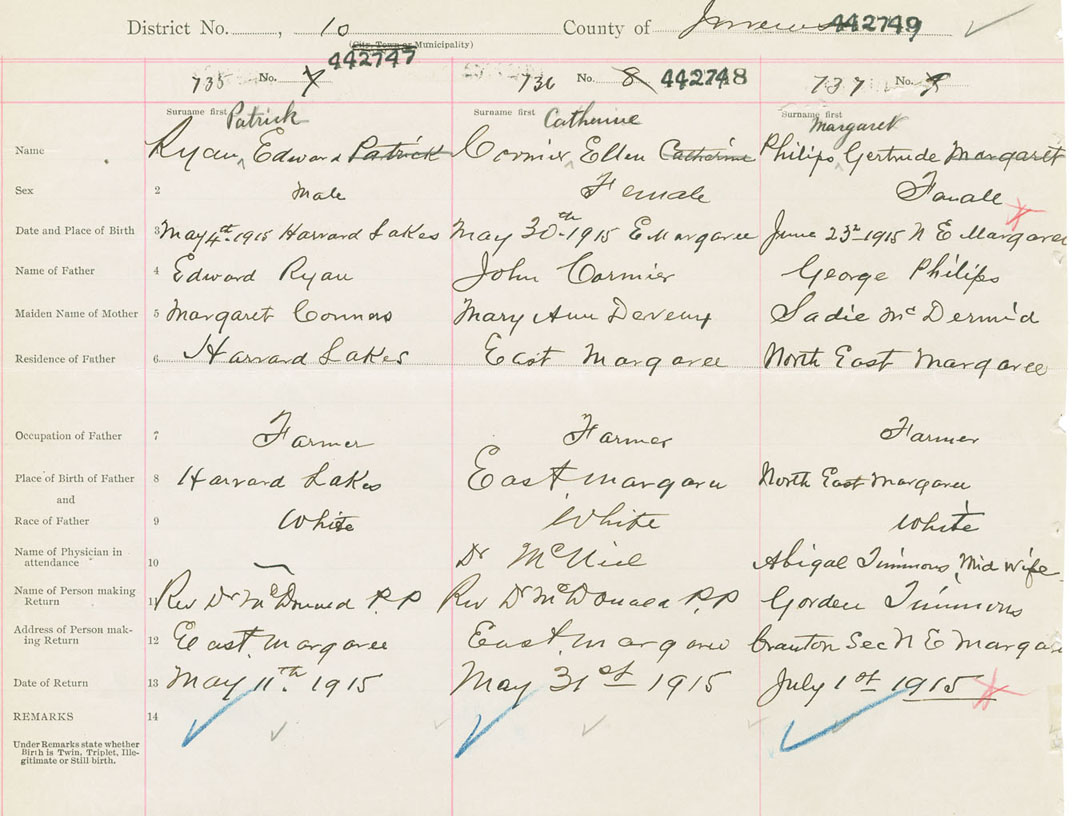 District No. 10 County of 442749
(City, Town or Municipality)
442747
735 No. 7 736 No. 8 442748 737 No. 9
Surname first Patrick Surname first Catherine Surname first Margaret
Name Ryan, Edward Patrick Cormier, Ellen Catherine Philips, Gertrude Margaret
Sex 2 Male Female Famale
Date and Place of Birth 3 May 4th 1915 Harvard Lakes May 30th 1915 E Margaree June 23rd 1915 N E Margaree
Name of Father 4 Edward Ryan John Cormier George Philips
Maiden Name of Mother 5 Margaret Connors Mary Ann Deveux Sadie McDermid
Residence of Father 6 Harvard Lakes East Margaree North East Margaree
Occupation of Father 7 Farmer Farmer Farmer
Place of Birth of Father 8 Harvard Lakes East Margaree North East Margaree
and
Race of Father 9 White White White
Name of Physician in
attendance 10 — Dr McNiel Abigal Timmons, Mid Wife
Name of Person making
Return 11 Rev Dr McDonald P.P Rev Dr McDonald P.P Gorden Timmons
Address of Person mak-
ing Return 12 East Margaree East Margaree Cranton Sec N E Margaree
Date of Return 13 May 11th 1915 May 31st 1915 July 1st 1915
REMARKS 14
Under Remarks state whether
Birth is Twin, Triplet, Ille-
gitimate or Still birth.